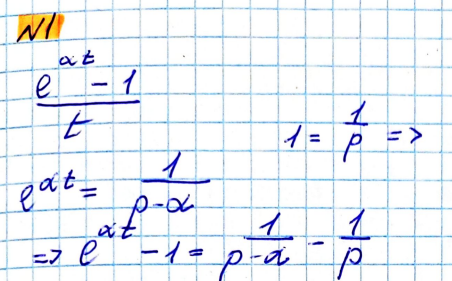 N1
(e^{αt} - 1)/t
1 = 1/p =>
e^{αt} = 1/(p-α)
=> e^{αt} - 1 = 1/(p-α) - 1/p